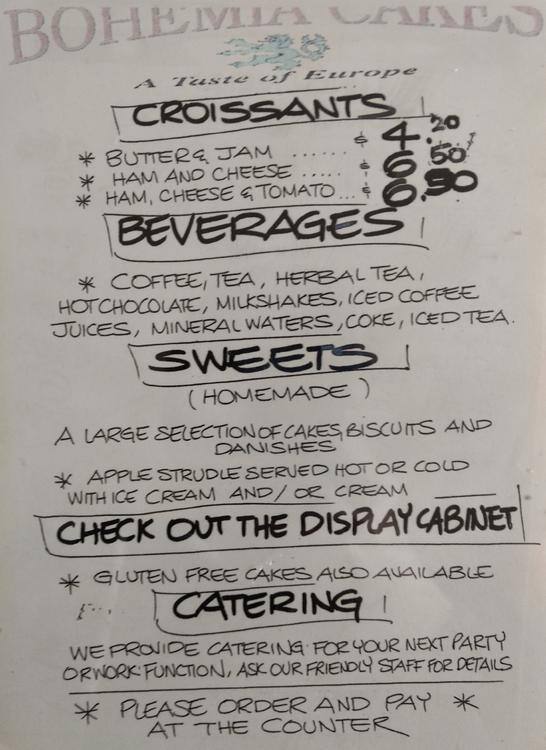 BOHEMIA CAKES
A Taste of Europe
CROISSANTS
* BUTTER & JAM ...... $ 4.20
* HAM AND CHEESE ..... $ 6.50
* HAM, CHEESE & TOMATO... $ 6.90
BEVERAGES
* COFFEE, TEA, HERBAL TEA,
HOT CHOCOLATE, MILKSHAKES, ICED COFFEE
JUICES, MINERAL WATERS, COKE, ICED TEA.
SWEETS
(HOMEMADE)
A LARGE SELECTION OF CAKES, BISCUITS AND
DANISHES
* APPLE STRUDLE SERVED HOT OR COLD
WITH ICE CREAM AND/OR CREAM
CHECK OUT THE DISPLAY CABINET
* GLUTEN FREE CAKES ALSO AVAILABLE
CATERING
WE PROVIDE CATERING FOR YOUR NEXT PARTY
OR WORK FUNCTION, ASK OUR FRIENDLY STAFF FOR DETAILS
* PLEASE ORDER AND PAY *
AT THE COUNTER